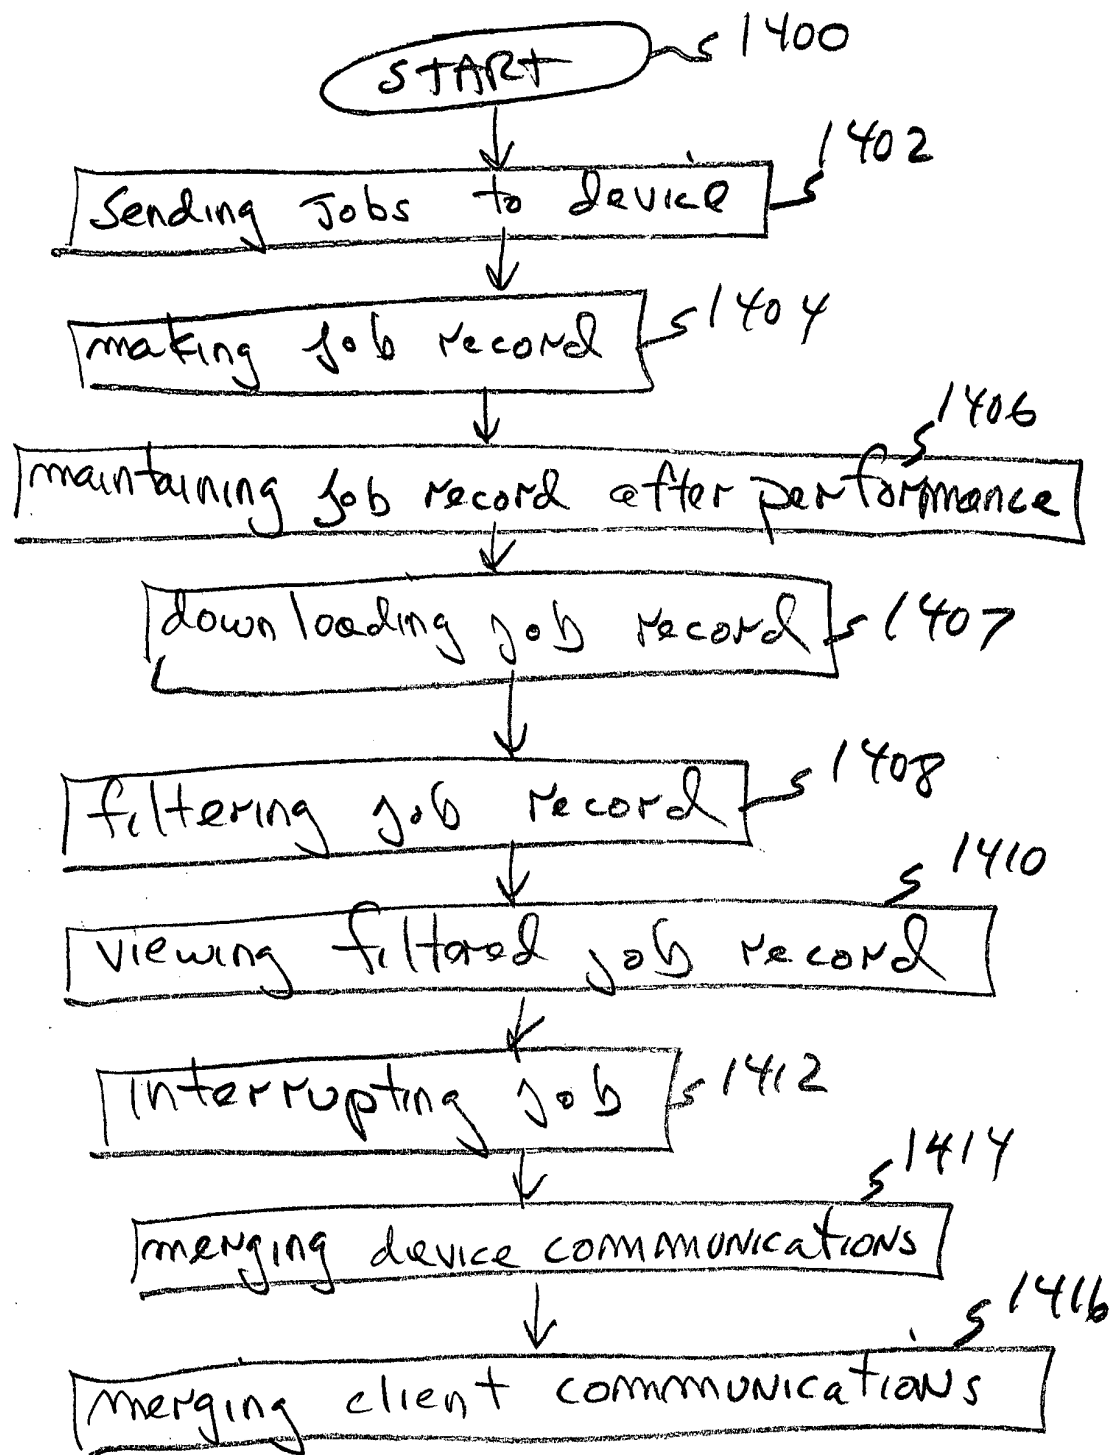 START 1400
Sending Jobs to device 1402
making job record 1404
maintaining job record after performance 1406
downloading job record 1407
filtering job record 1408
viewing filtered job record 1410
interrupting job 1412
merging device communications 1414
merging client communications 1416